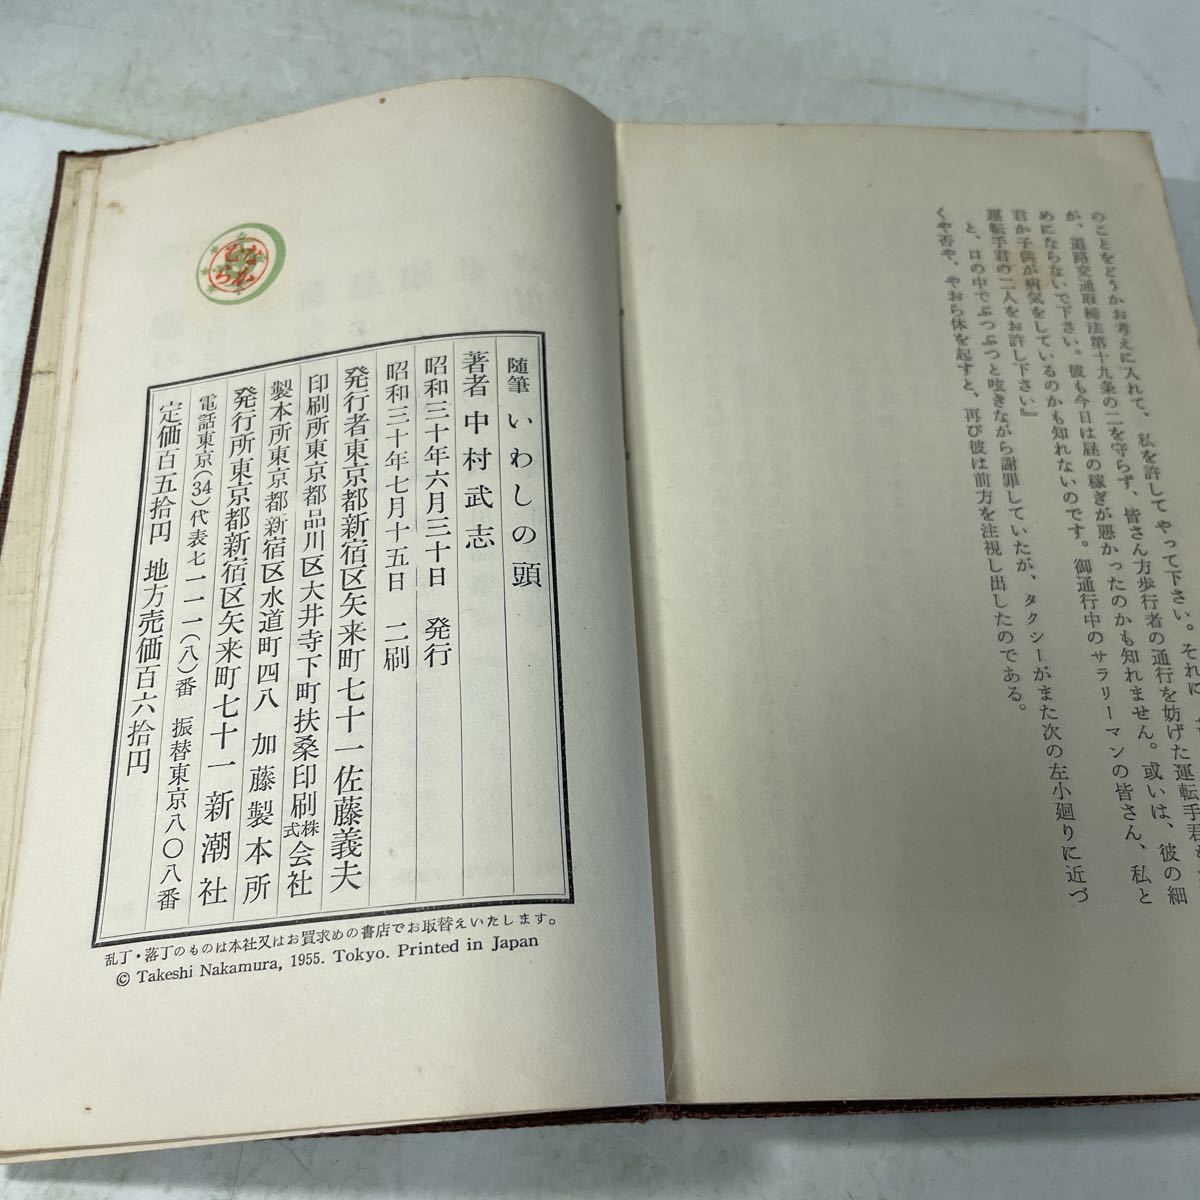 のことをどうかお考えに入れて、私を許してやって下さい。それに
が、道路交通取締法第十九条の二を守らず、皆さん方歩行者の通行を妨げた運転手君を
めにならないで下さい。彼も今日は昼の稼ぎが悪かったのかも知れません。或いは、彼の細
君か子供が病気をしているのかも知れないのです。御通行中のサラリーマンの皆さん、私と
運転手君の二人をお許し下さい』
と、口の中でぶつぶつと呟きながら謝罪していたが、タクシーがまた次の左小廻りに近づ
くや否や、やおら体を起すと、再び彼は前方を注視し出したのである。
なかむら
随筆 いわしの頭
著者 中村武志
昭和三十年六月三十日 発行
昭和三十年七月十五日 二刷
発行者東京都新宿区矢来町七十一佐藤義夫
印刷所東京都品川区大井寺下町扶桑印刷株式会社
製本所東京都新宿区水道町四八 加藤製本所
発行所東京都新宿区矢来町七十一 新潮社
電話東京(34)代表七一一一(八)番 振替東京八〇八番
定価百五拾円 地方売価百六拾円
乱丁・落丁のものは本社又はお買求めの書店でお取替えいたします。
© Takeshi Nakamura, 1955. Tokyo. Printed in Japan